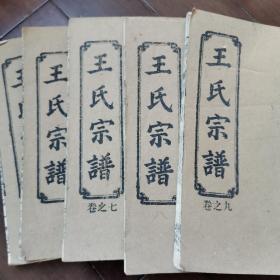 王氏宗譜
卷之九
王氏宗譜
八
王氏宗譜
卷之七
王氏宗譜
王氏